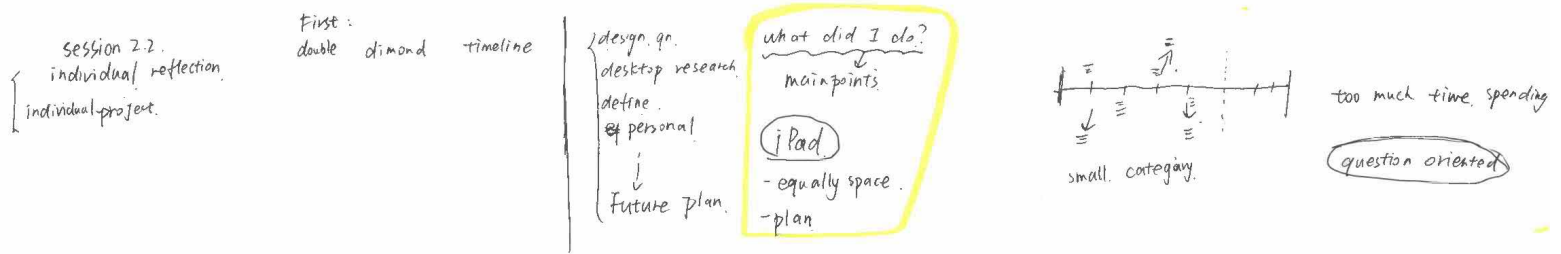 session 2.2.
individual reflection.
individual project.
First :
double dimond timeline
design. qn.
desktop research.
define.
personal
Future plan.
what did I do?
mainpoints.
iPad
- equally space.
- plan
small. category.
too much time. spending
question oriented